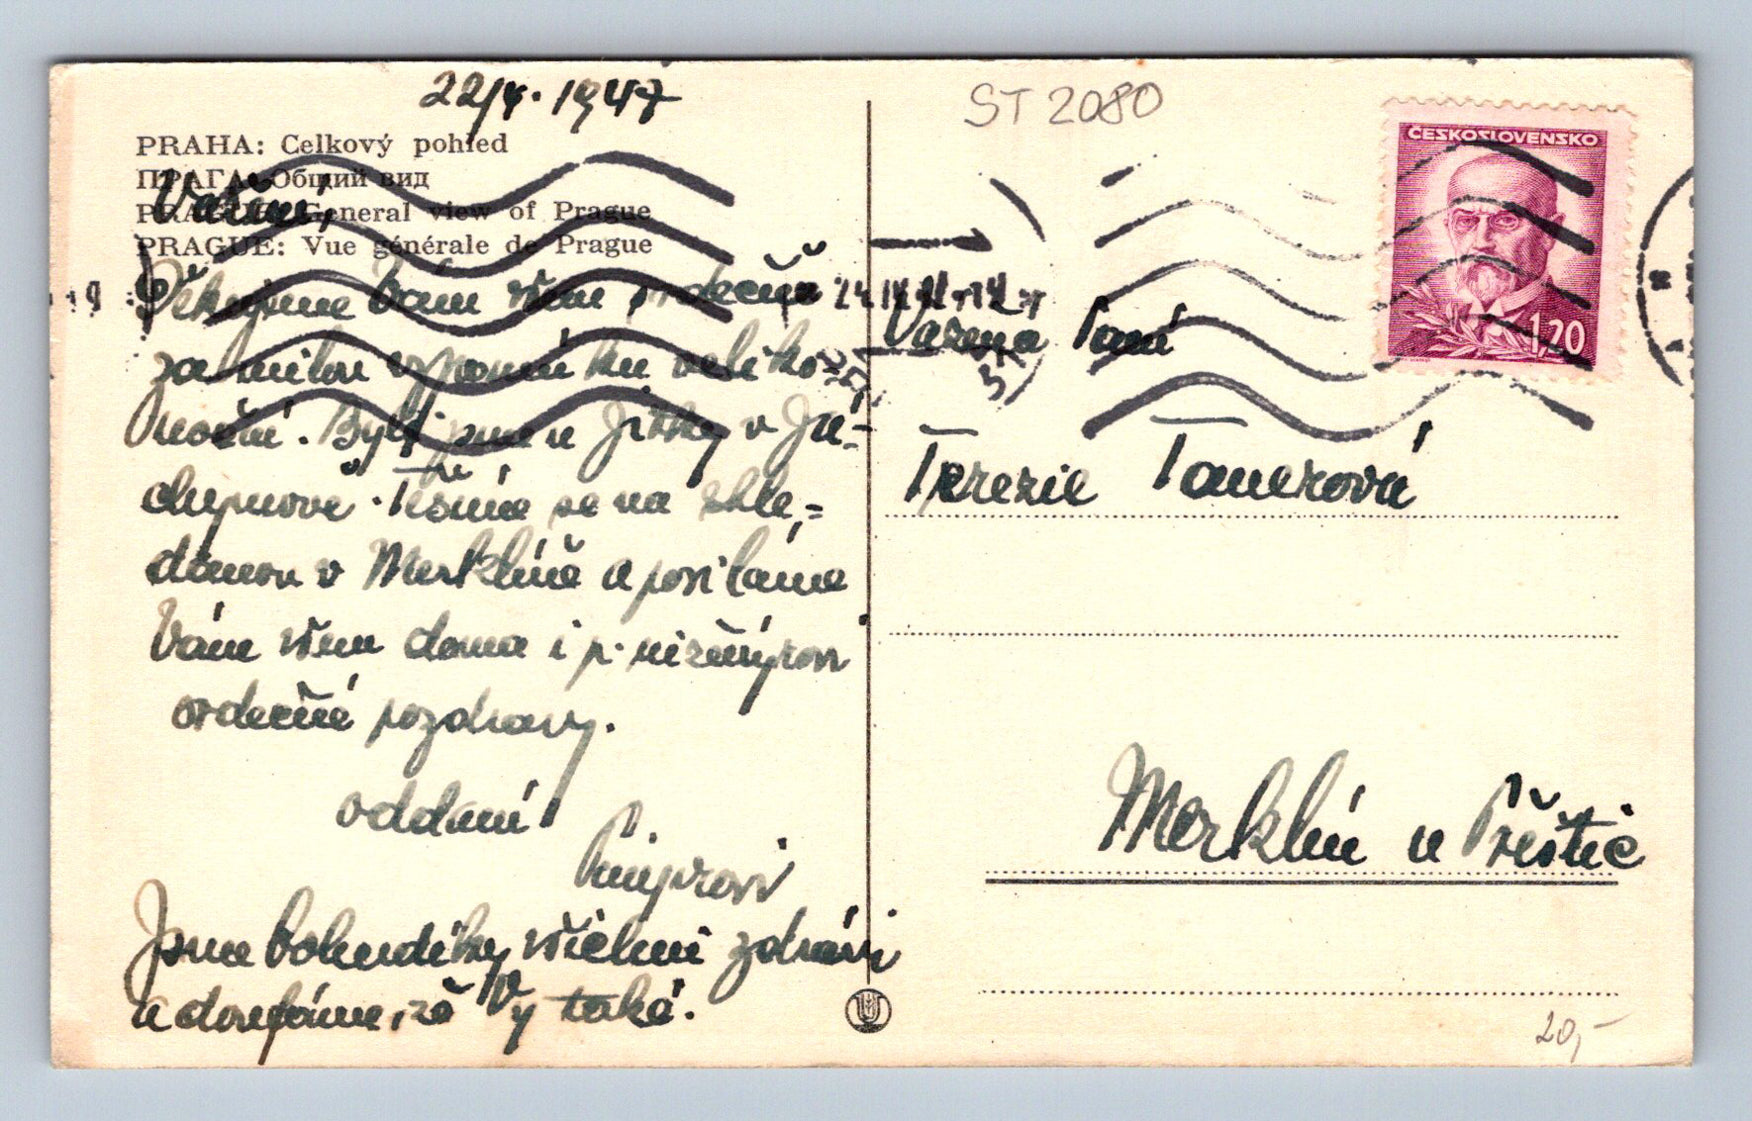 22/4. 1947
PRAHA: Celkový pohled
ПРАГА: Общий вид
PRAGUE: General view of Prague
PRAGUE: Vue générale de Prague
Vážení,
Děkujeme Vám všem srdečně
za milou vzpomínku veliko-
noční. Byli jsme u Jitky v Já-
chymově. Těšíme se na shle-
danou v Merklíně a posíláme
Vám všem doma i p.
srdečné pozdravy.
oddaní
Jsme bohudíky všichni zdrávi
a doufáme, že Vy také.
ST 2080
ČESKOSLOVENSKO
1,20
24.IV.47-14
Vážená Paní
Terezie Tanerová
Merklín u Přeštic
20,-